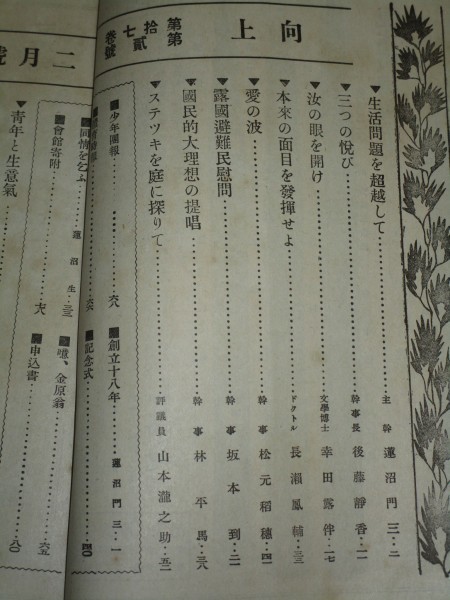 向上
第拾七卷
第貳號
二月號
▼生活問題を超越して 主幹 蓮沼門三 二
▼三つの悅び 幹事長 後藤靜香 一一
▼汝の眼を開け 文學博士 幸田露伴 一七
▼本來の面目を發揮せよ ドクトル 長瀨鳳輔 三
▼愛の波 幹事 松元稻穗 四
▼露國避難民慰問 幹事 坂本到 二一
▼國民的大理想の提唱 幹事 林平馬 三八
▼ステツキを庭に探りて 評議員 山本瀧之助 五二
■少年團報 六八
■創立十八年 蓮沼門三 一
六六
■記念式 四〇
■同情を乞ふ 蓮沼生 三三
■會館寄附 六八
■噫、金原翁 六五
■申込書 八〇
▼靑年と生意氣